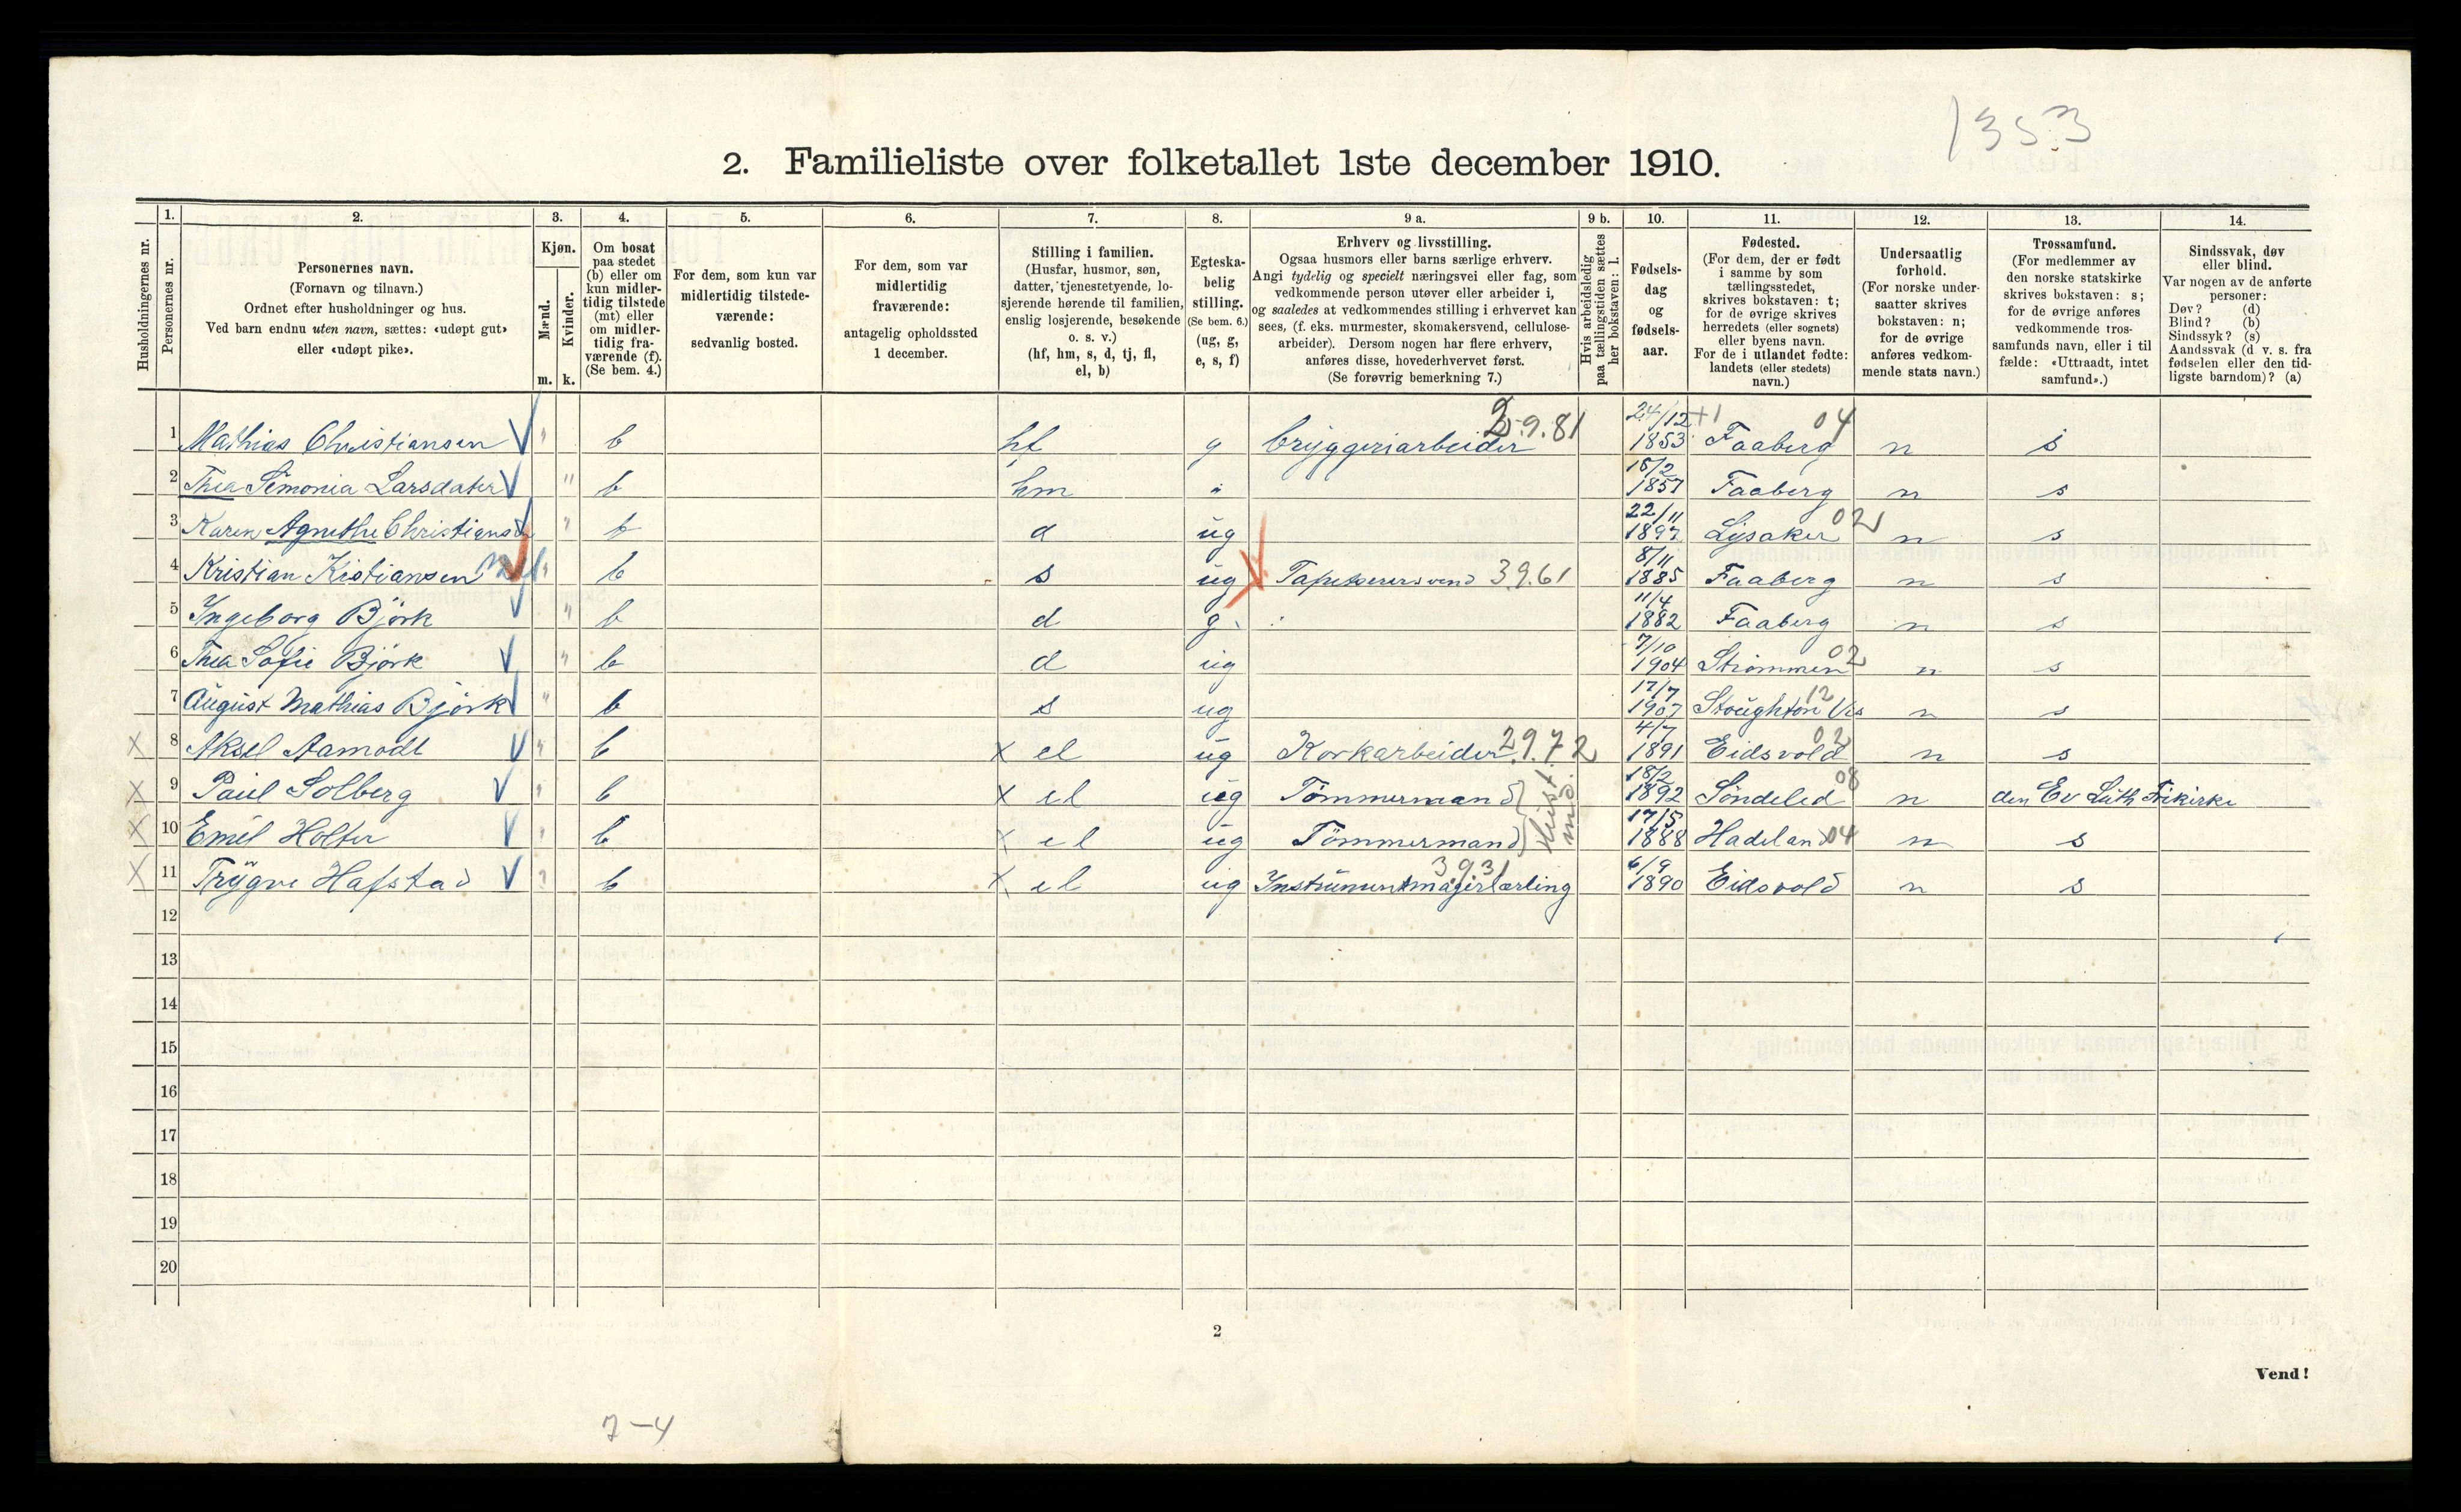 1353
2. Familieliste over folketallet 1ste december 1910.
1. 2. 3. 4. 5. 6. 7. 8. 9 a. 9 b. 10. 11. 12. 13. 14.
Husholdningernes nr.
Personernes nr.
Personernes navn.
(Fornavn og tilnavn.)
Ordnet efter husholdninger og hus.
Ved barn endnu uten navn, sættes: «udøpt gut»
eller «udøpt pike».
Kjøn.
Mænd.
Kvinder.
m. k.
Om bosat
paa stedet
(b) eller om
kun midler-
tidig tilstede
(mt) eller
om midler-
tidig fra-
værende (f).
(Se bem. 4.)
For dem, som kun var
midlertidig tilstede-
værende:
sedvanlig bosted.
For dem, som var
midlertidig
fraværende:
antagelig opholdssted
1 december.
Stilling i familien.
(Husfar, husmor, søn,
datter, tjenestetyende, lo-
sjerende hørende til familien,
enslig losjerende, besøkende
o. s. v.)
(hf, hm, s, d, tj, fl,
el, b)
Egteska-
belig
stilling.
(Se bem. 6.)
(ug, g,
e, s, f)
Erhverv og livsstilling.
Ogsaa husmors eller barns særlige erhverv.
Angi tydelig og specielt næringsvei eller fag, som
vedkommende person utøver eller arbeider i,
og saaledes at vedkommendes stilling i erhvervet kan
sees, (f. eks. murmester, skomakersvend, cellulose-
arbeider). Dersom nogen har flere erhverv,
anføres disse, hovederhvervet først.
(Se forøvrig bemerkning 7.)
Hvis arbeidsledig
paa tællingstiden sættes
her bokstaven: l.
Fødsels-
dag
og
fødsels-
aar.
Fødested.
(For dem, der er født
i samme by som
tællingsstedet,
skrives bokstaven: t;
for de øvrige skrives
herredets (eller sognets)
eller byens navn.
For de i utlandet fødte:
landets (eller stedets)
navn.)
Undersaatlig
forhold.
(For norske under-
saatter skrives
bokstaven: n;
for de øvrige
anføres vedkom-
mende stats navn.)
Trossamfund.
(For medlemmer av
den norske statskirke
skrives bokstaven: s;
for de øvrige anføres
vedkommende tros-
samfunds navn, eller i til
fælde: «Uttraadt, intet
samfund».)
Sindssvak, døv
eller blind.
Var nogen av de anførte
personer:
Døv? (d)
Blind? (b)
Sindssyk? (s)
Aandssvak (d v. s. fra
fødselen eller den tid-
ligste barndom)? (a)
1 Mathias Christiansen " b hf g bryggeriarbeider 2.9.81 24/12 1853 +1 Faaberg 04 n s
2 Thea Simonia Larsdater " b hm " 15/2 1857 Faaberg n s
3 Karen Agnethe Christians " b d ug 22/11 1897 Lysaker 02 n s
4 Kristian Kistiansen " b s ug Tapeserersvend 3.9.61 8/11 1885 Faaberg n s
5 Ingeborg Björk " b d g 11/4 1882 Faaberg n s
6 Thea Sofie Björk " b d ug 7/10 1904 Strømmen 02 n s
7 August Mathias Björk " b s ug 17/7 1907 Stoughton Vis 12 n s
X 8 Aksel Aamodt " b X el ug Korkarbeider 2.9.72 4/7 1891 Eidsvold 02 n s
X 9 Paul Solberg " b X el ug Tømmermand 18/2 1892 Søndeled 08 n den Ev Luth Frikirke
X 10 Emil Holter " b X el ug Tømmermand 17/5 1888 Hadeland 04 n s
X 11 Trygve Hafstad " b X el ug Instrumentmagerlærling 3.9.31 6/9 1890 Eidsvold n s
12
13
14
15
16
17
18
19
20
2
Vend!
7-4